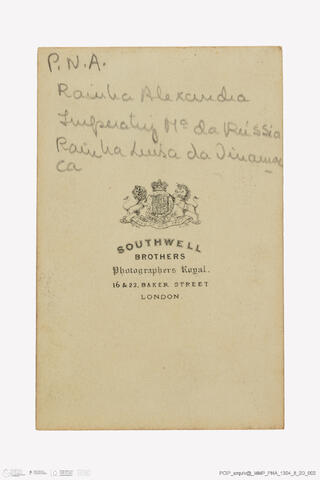 P.N.A.
Rainha Alexandra
Imperatriz Mª da Rússia
Rainha Luisa da Dinamar
ca
SOUTHWELL
BROTHERS
Photographers Royal.
16 & 22, BAKER STREET
LONDON